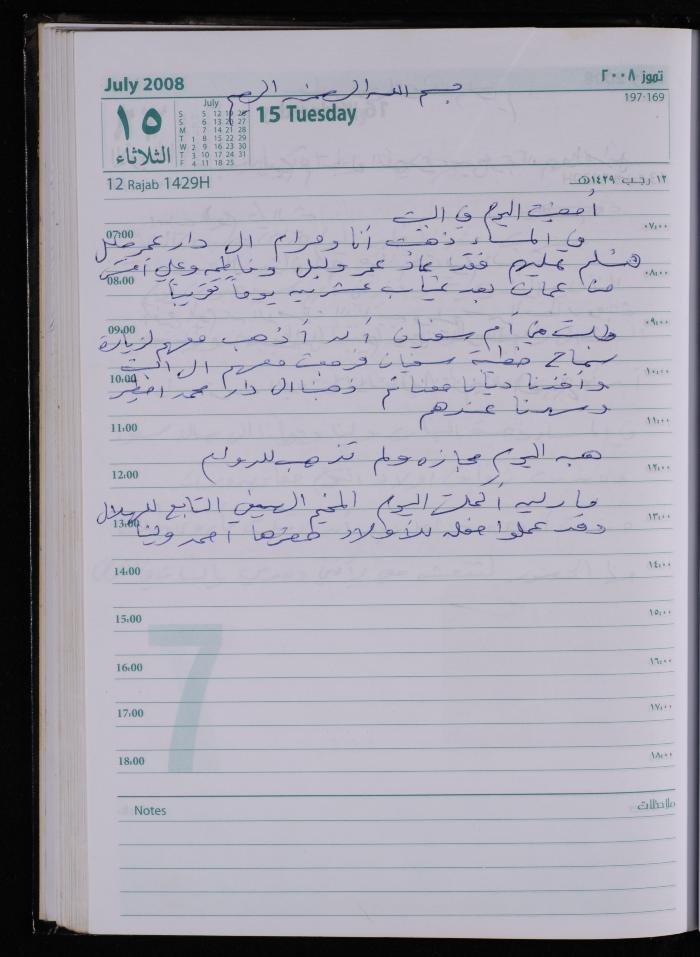 July 2008
تموز ٢٠٠٨
بسم الله الرحمن الرحيم
197-169
١٥
الثلاثاء
July
S 5 12 19 26
S 6 13 20 27
M 7 14 21 28
T 1 8 15 22 29
W 2 9 16 23 30
T 3 10 17 24 31
F 4 11 18 25
15 Tuesday
12 Rajab 1429H
١٢ رجب ١٤٢٩هـ
أمضيت اليوم في البيت
07:00 ٠٧:٠٠
في المساء ذهبت أنا ومرام الى دار عمر
لنسلم عليهم فقد عاد عمر وليل وفاطمه وعلي أمس
08:00 ٠٨:٠٠
من عمان بعد غياب عشرين يوماً تقريباً
09:00 ٠٩:٠٠
وطلبت مني أم سفيان أن أذهب معهم لزيارة
سماح خطيبة سفيان فرجعت معهم الى البيت
10:00 ١٠:٠٠
وأخذنا ديانا معنا ثم ذهبنا الى دار محمد
وسهرنا عندهم
11:00 ١١:٠٠
هبه اليوم مجازه ولم تذهب للدوام
12:00 ١٢:٠٠
مارليه أكملت اليوم المخيم الصيفي التابع للهلال
13:00 ١٣:٠٠
وقد عملوا حفله للأولاد حضرها أحمد ولينا
14:00 ١٤:٠٠
15:00 ١٥:٠٠
7
16:00 ١٦:٠٠
17:00 ١٧:٠٠
18:00 ١٨:٠٠
Notes
ملاحظات